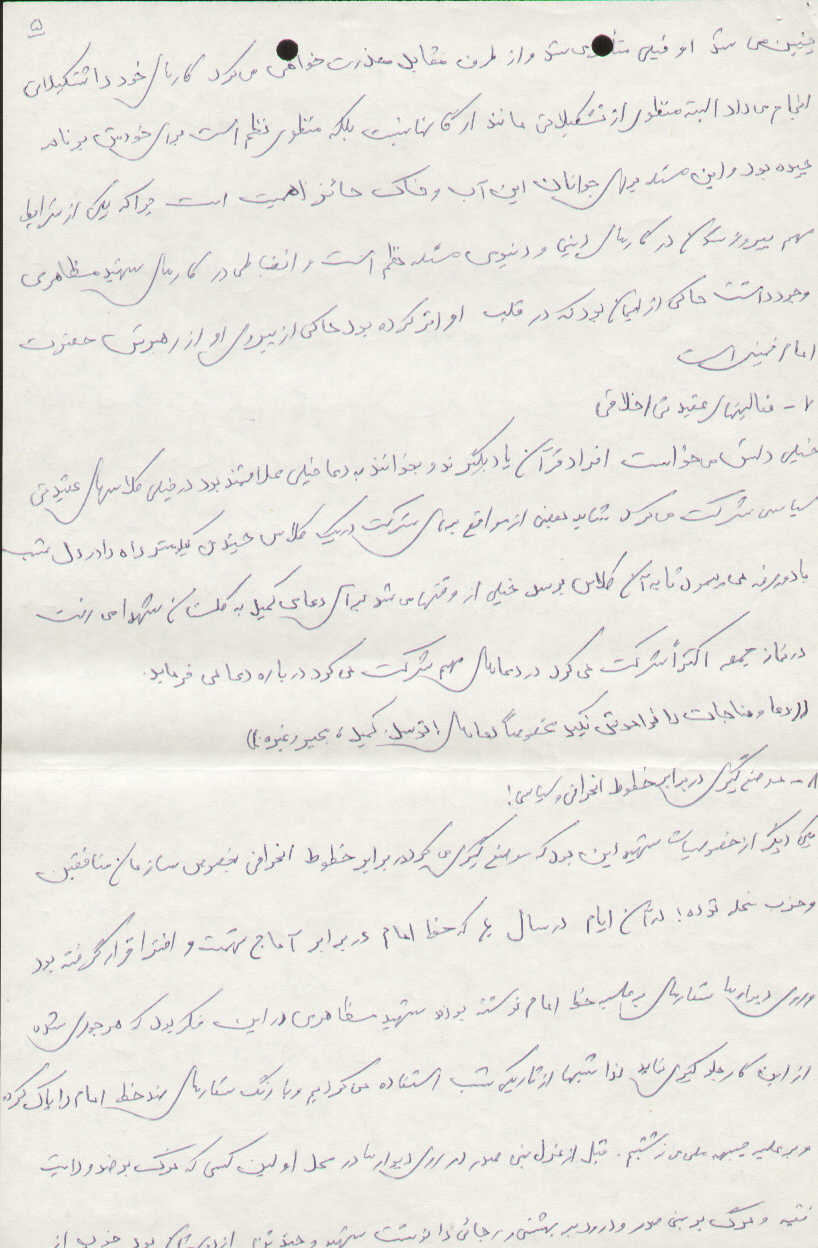 ۵
چنین می شد او خیلی می شد و از طرف مقابل معذرت خواهی می کرد کارهای خود را تشکیلاتی
انجام می داد البته منظور از تشکیلاتی مانند ارگانها نیست بلکه منظور نظم است برای خودش برنامه
چیده بود و این مسئله برای جوانان این آب و خاک حائز اهمیت است چرا که یکی از شرایط
مهم پیروز شدن در کارهای دینی و دنیوی مسئله نظم است و انضباطی در کارهای شهید مظاهری
وجود داشت حاکی از ایمان بود که در قلب او اثر کرده بود حاکی از پیروی او از رهبرش حضرت
امام خمینی است
۷ - فعالیتهای عقیدتی اخلاقی
خیلی دلش می خواست افراد قرآن یاد بگیرند و بخوانند به دعا خیلی علاقمند بود در خیلی کلاسهای عقیدتی
سیاسی شرکت می کرد شاید بعضی از مواقع برای شرکت در یک کلاس چندین کیلومتر راه را در دل شب
با دوچرخه می پیمود تا به آن کلاس برسد خیلی از وقتها می شد برای دعای کمیل به گلستان شهدا می رفت
در نماز جمعه اکثراً شرکت می کرد در دعاهای مهم شرکت می کرد درباره دعا می فرماید
((دعا و مناجات را فراموش نکنید مخصوصاً دعاهای توسل، کمیل، مجیر و غیره))
۸ - موضع گیری در برابر خطوط انحرافی و سیاسی!
یکی دیگر از خصوصیات شهید این بود که موضع گیری می کرد در برابر خطوط انحرافی بخصوص سازمان منافقین
و حزب منحله توده! در آن ایام در سال که خط امام در برابر آماج تهمت و افترا قرار گرفته بود
و روی دیوارها شعارهای بر علیه خط امام نوشته بودند شهید مظاهری در این فکر بود که هر جوری شده
از این کار جلوگیری نماید لذا شبها از تاریکی شب استفاده می کردیم و با رنگ شعارهای ضد خط امام را پاک کرده
و بر علیه جبهه ملی می نوشتیم. قبل از عزل بنی صدر در روی دیوارها در محل اولین کسی که مرگ بر ضد ولایت
فقیه و مرگ بر بنی صدر و درود بر بهشتی و رجائی را نوشت شهید و چند تن از دوستان بود